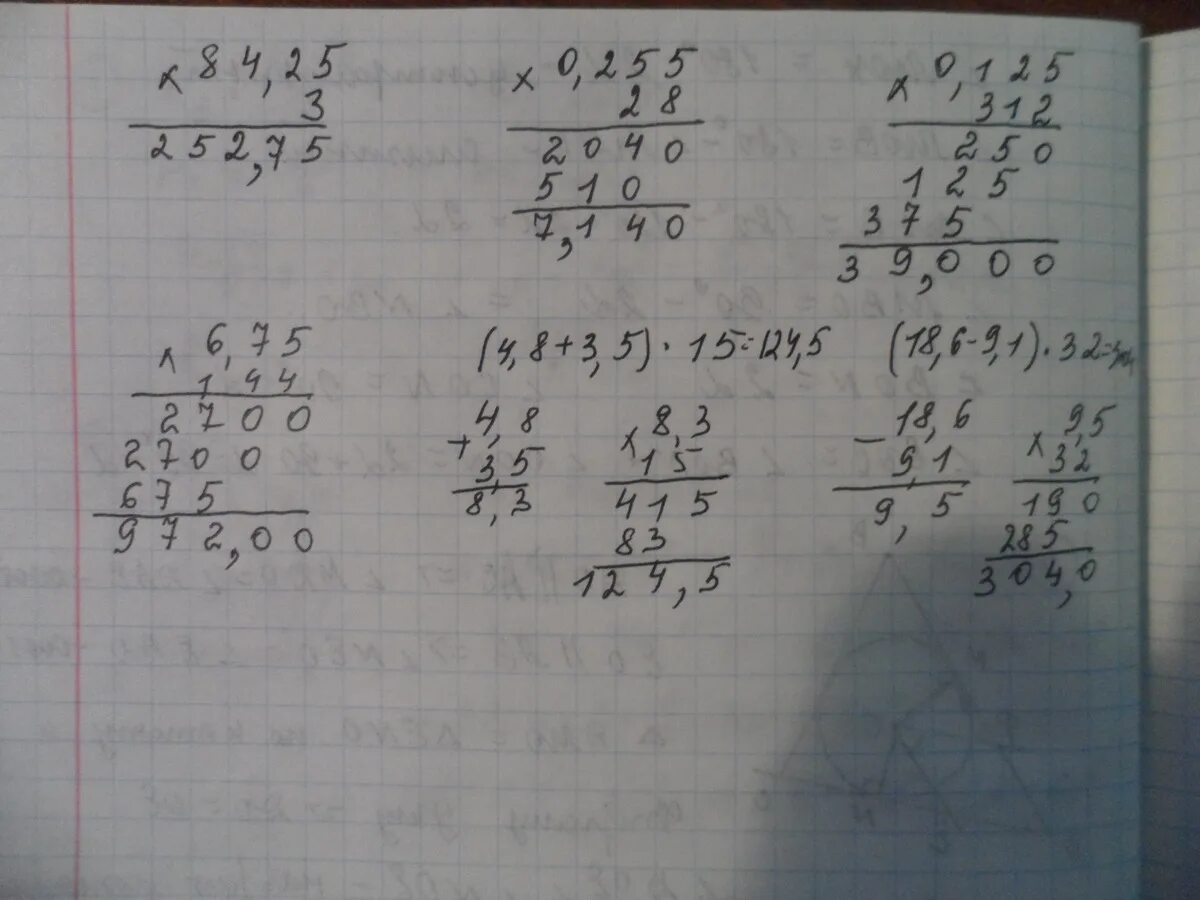 × 84,25
3
252,75
× 0,255
28
2040
510
7,140
× 0,125
312
250
125
375
39,000
× 6,75
144
2700
2700
675
972,00
(4,8+3,5) · 15=124,5
+ 4,8
3,5
8,3
× 8,3
15
415
83
124,5
(18,6-9,1) · 32=
− 18,6
9,1
9,5
× 9,5
32
190
285
304,0